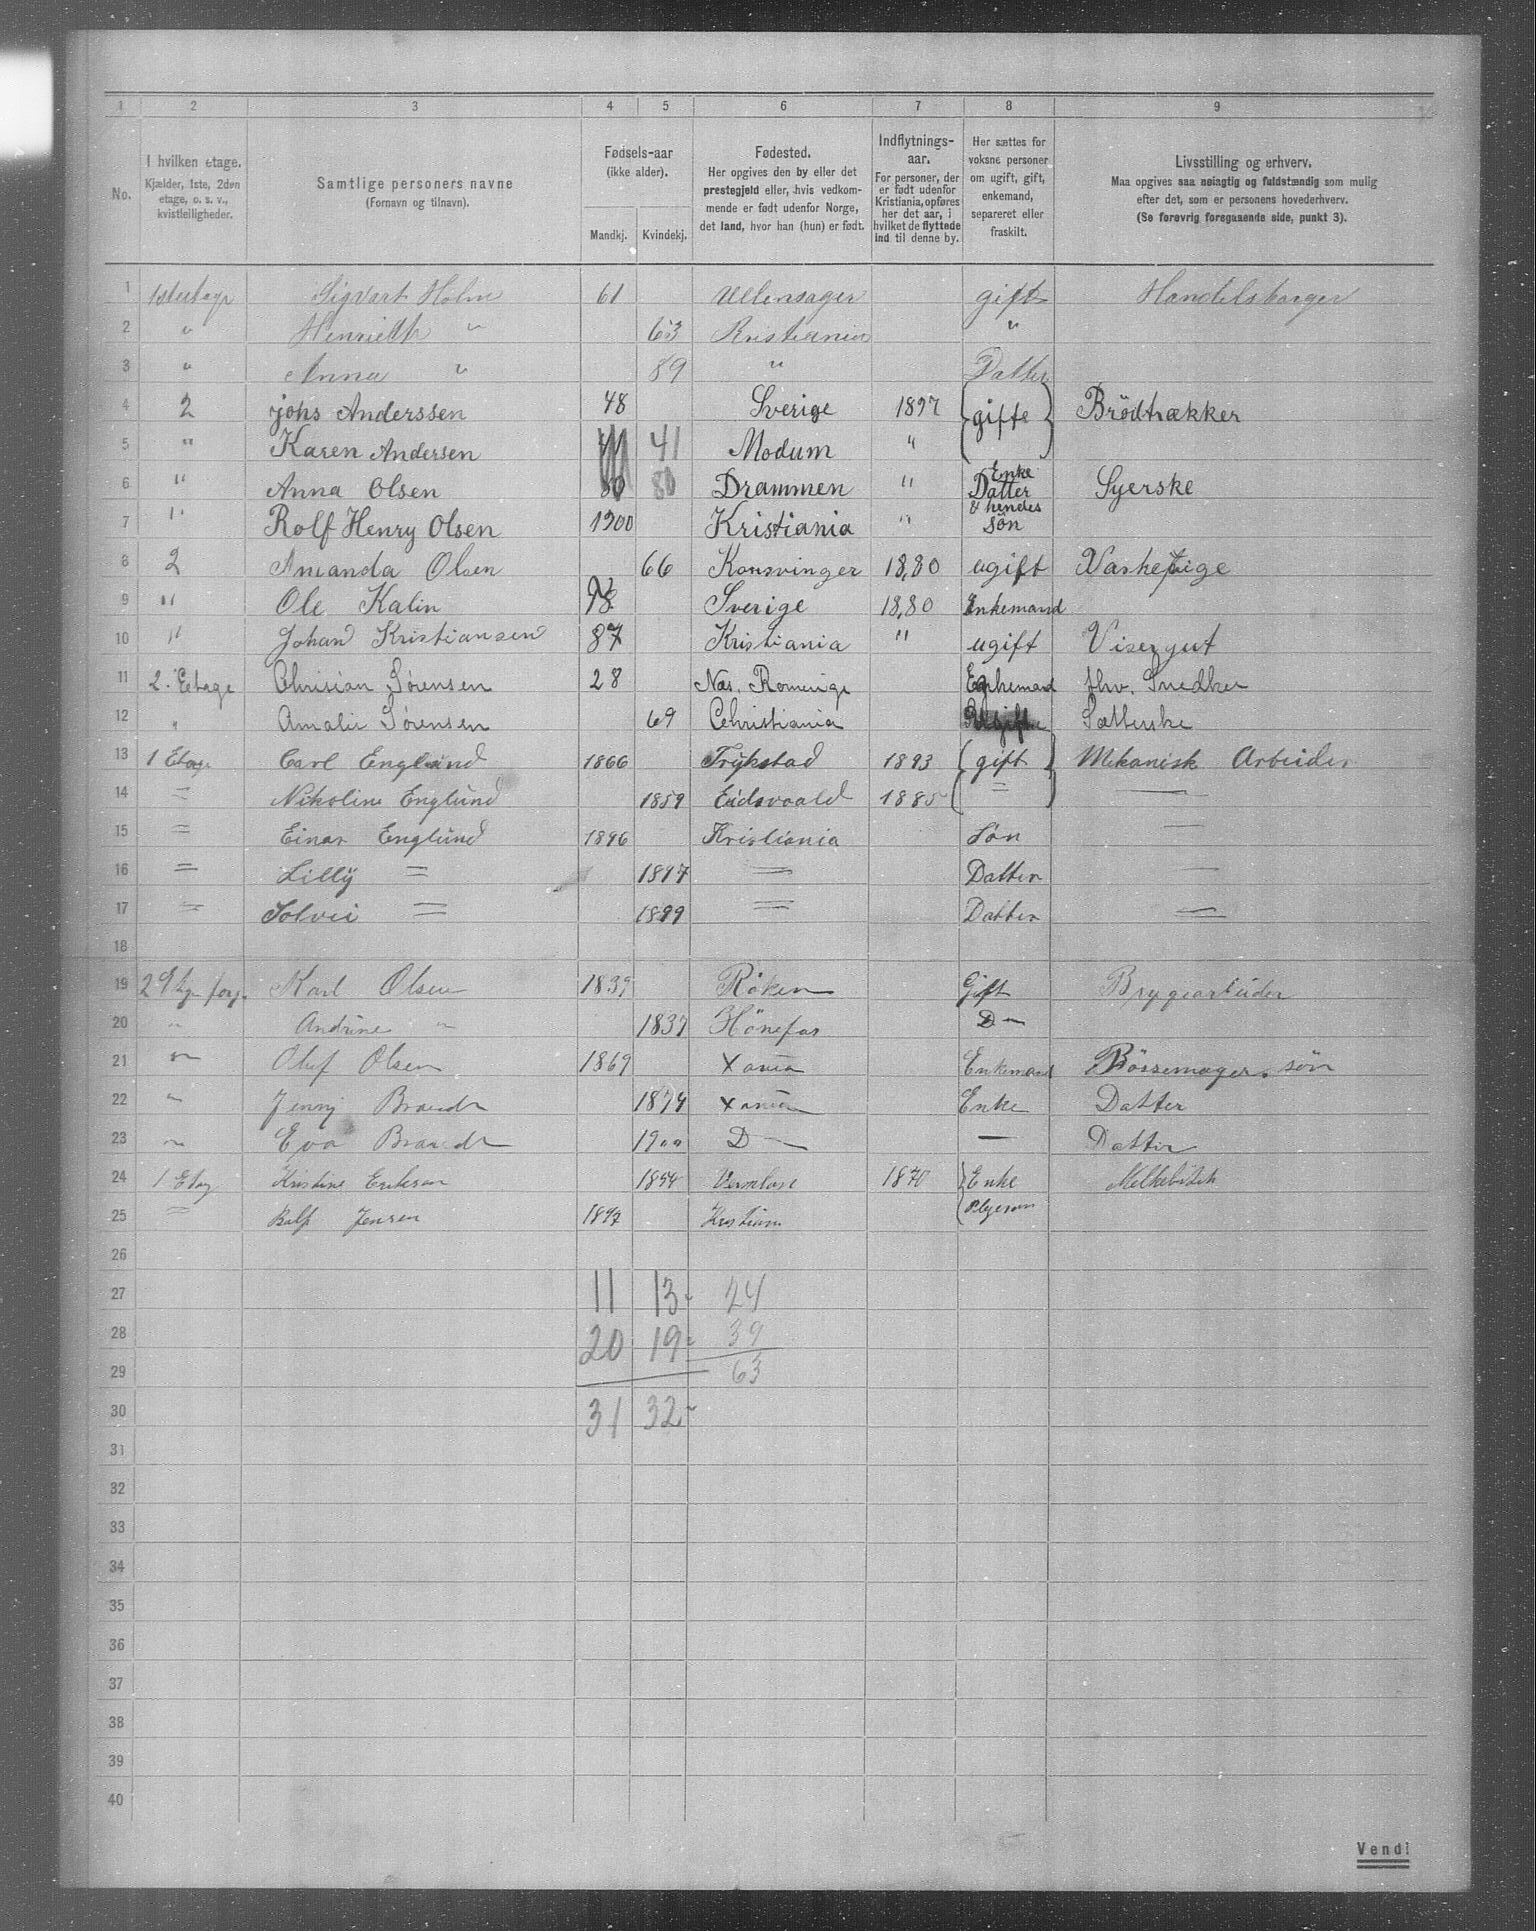 1 2 3 4 5 6 7 8 9
No.
I hvilken etage.
Kjælder, 1ste, 2den
etage, o. s. v.,
kvistleiligheder.
Samtlige personers navne
(Fornavn og tilnavn).
Fødsels-aar
(ikke alder).
Mandkj. Kvindekj.
Fødested.
Her opgives den by eller det
prestegjeld eller, hvis vedkom-
mende er født udenfor Norge,
det land, hvor han (hun) er født.
Indflytnings-
aar.
For personer, der
er født udenfor
Kristiania, opføres
her det aar, i
hvilket de flyttede
ind til denne by.
Her sættes for
voksne personer
om ugift, gift,
enkemand,
separeret eller
fraskilt.
Livsstilling og erhverv.
Maa opgives saa nøiagtig og fuldstændig som mulig
efter det, som er personens hovederhverv.
(Se forøvrig foregaaende side, punkt 3).
1 Sigvart Holm 61 Ullensager gift Handelsborger
2 " Henrieth " 63 Kristiania "
3 " Anna " 89 " Datter
4 2 johs Anderssen 48 Sverige 1897 gifte Brödtrækker
5 " Karen Andersen 41 Modum "
6 " Anna Olsen 80 80 Drammen " Enke Datter Syerske
7 " Rolf Henry Olsen 1900 Kristiania " & hendes Sön
8 2 Amanda Olsen 66 Konsvinger 18,80 ugift Vaskepige
9 " Ole Kalin Sverige 18,80 Enkemand
10 " Johan Kristiansen 87 Kristiania " ugift Visergut
11 2. Etage Chrisian Sørensen 28 Næs. Romerige Enkemand fhv. Snedker
12 " Amalie Sørensen 69 Christiania Sætterske
13 1 Etage Carl Englund 1866 Trykstad 1893 gift Mekanisk Arbeider
14 = Nikoline Englund 1859 Eidsvoald 1885 =
15 = Einar Englund 1896 Kristiania Søn
16 = Lilly = 1897 = Datter
17 = Solvei = 1899 = Datter
18
19 Karl Olsen 1839 Röken Gift Brygearbeider
20 " Andrine " 1837 Hönefos D
21 " Oluf Olsen 1869 Xania Enkemand Bössemager. sön
22 " Jenny Brandt 1874 Xania Enke Datter
23 " Eva Brandt 1900 D — Datter
24 1 Etag Kristine Eriksen 1854 1870 Enke
25 = Ralf Jensen 1897 Kristiania Plejesøn
26
27 11 13 24
28 20 19 39
29 63
30 31 32
31
32
33
34
35
36
37
38
39
40
Vend!